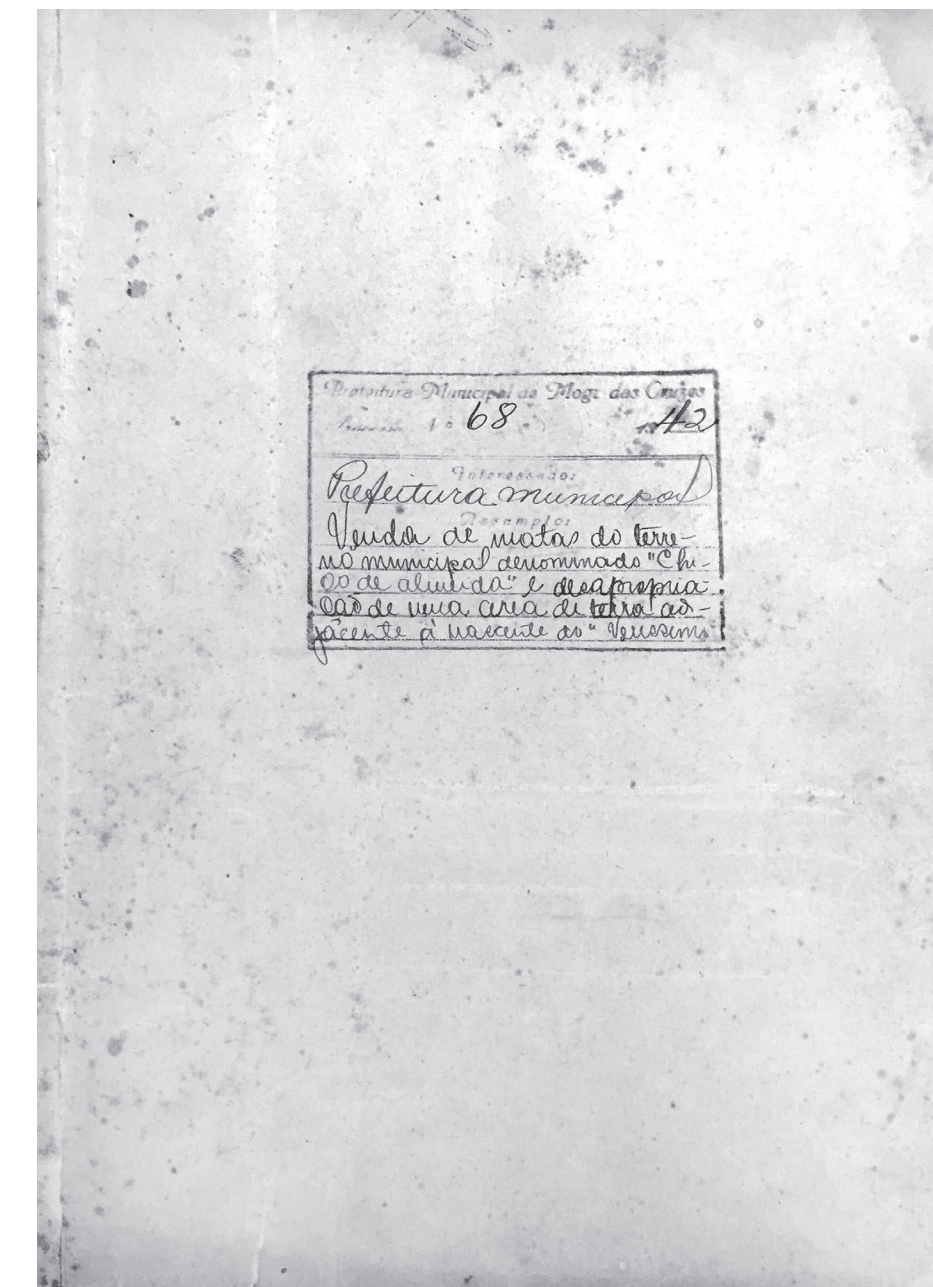 Prefeitura Municipal de Mogi das Cruzes
Processo 68 42
Interessado:
Prefeitura municipal
Assumpto:
Venda de matas do terre-
no municipal denominado "Chi-
co de almeida" e desapropria-
ção de uma area de terra ad-
jacente á nascente do "Verissimo